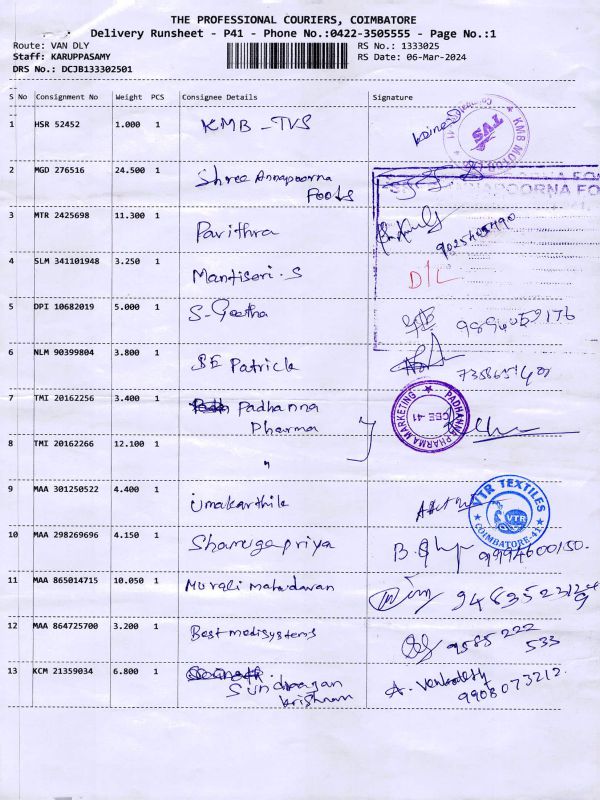 THE PROFESSIONAL COURIERS, COIMBATORE
Delivery Runsheet - P41 - Phone No.:0422-3505555 - Page No.:1
Route: VAN DLY RS No.: 1333025
Staff: KARUPPASAMY RS Date: 06-Mar-2024
DRS No.: DCJB133302501
S No Consignment No Weight PCS Consignee Details Signature
1 HSR 52452 1.000 1 KMB - TVS
KMB MOTO
TVS
2 MGD 276516 24.500 1 Shree Annapoorna
Foods
3 MTR 2425698 11.300 1 Pavithra
4 SLM 341101948 3.250 1 Mantisori. S D/L
5 DPI 10682019 5.000 1 S-Geetha 9894059176
6 NLM 90399804 3.800 1 SE Patrick
7 TMI 20162256 3.400 1 Padhanna
Pharma
PADHANNA PHARMA MARKETING
CBE-41
8 TMI 20162266 12.100 1 "
9 MAA 301250522 4.400 1 Umakarthik
VTR TEXTILES
VTR
COIMBATORE-41
10 MAA 298269696 4.150 1 Shanugapriya 9994600150.
11 MAA 865014715 10.050 1 Murali mahadavan
12 MAA 864725700 3.200 1 Best medisystems 9585222
533
13 KCM 21359034 6.800 1 Sundraagan
krishnan
A. Venkatesh
9908073212.